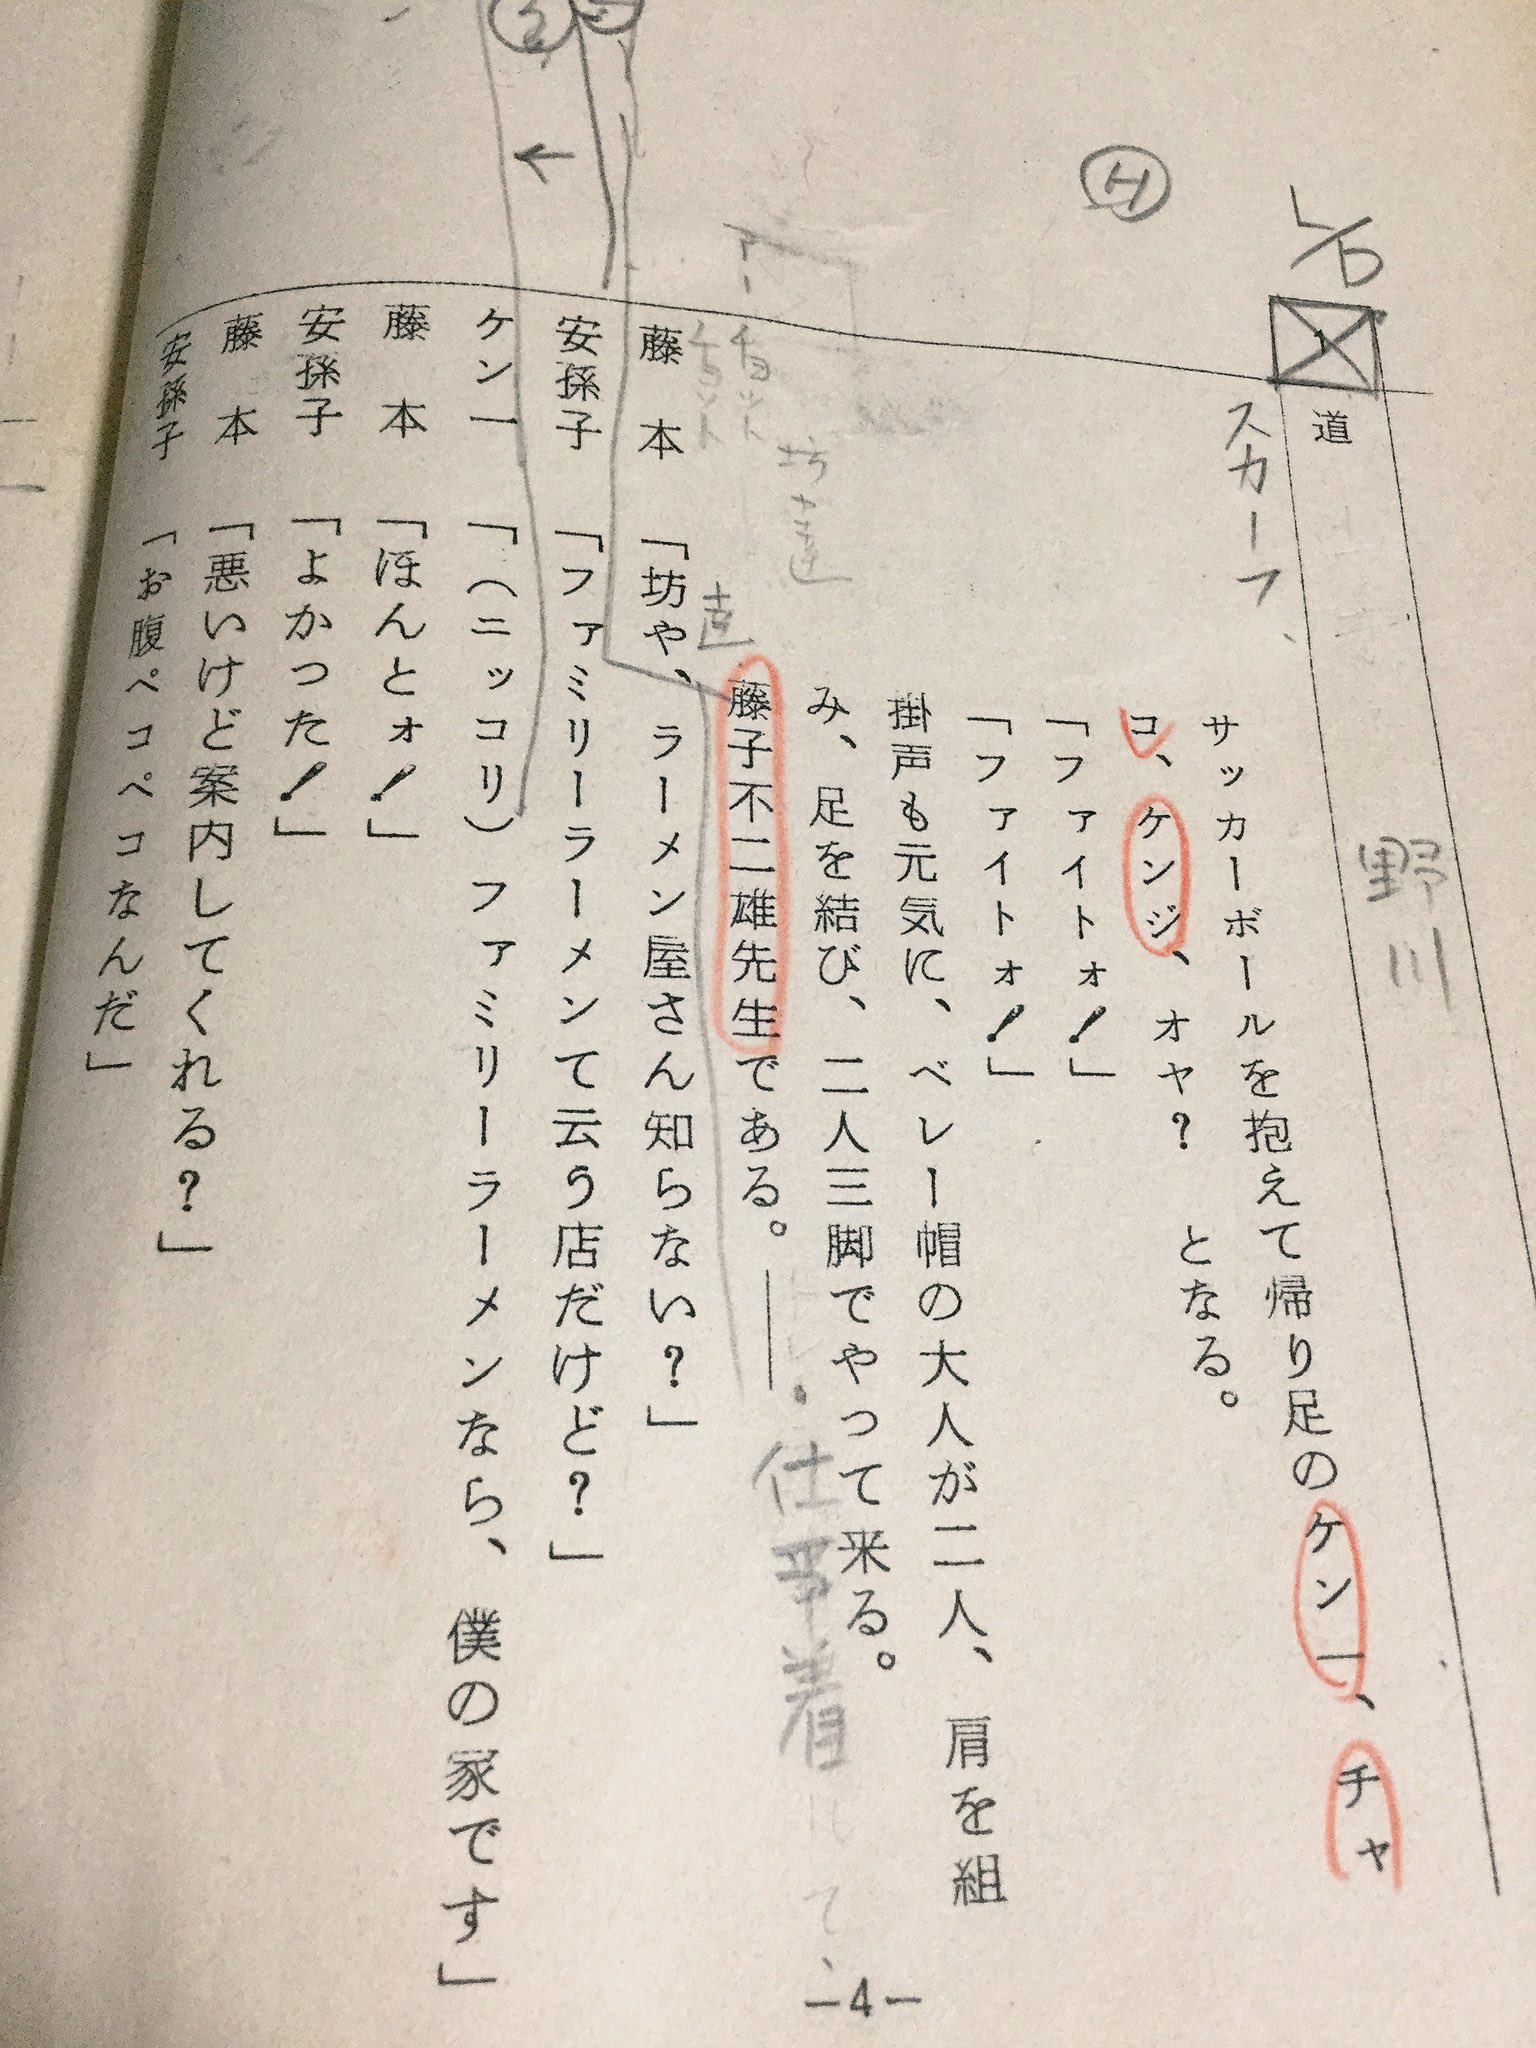 L/D
1
道
野川
スカーフ、
H
サッカーボールを抱えて帰り足のケン一、チャ
コ、ケンジ、オヤ？　となる。
「ファイトォ！」
「ファイトォ！」
掛声も元気に、ベレー帽の大人が二人、肩を組
み、足を結び、二人三脚でやって来る。
坊達
藤子不二雄先生である。――
仕事着
達
藤本「坊や、ラーメン屋さん知らない？」
安孫子「ファミリーラーメンて云う店だけど？」
ケン一「（ニッコリ）ファミリーラーメンなら、僕の家です」
藤本「ほんとォ！」
安孫子「よかった！」
藤本「悪いけど案内してくれる？」
安孫子「お腹ペコペコなんだ」
－4－